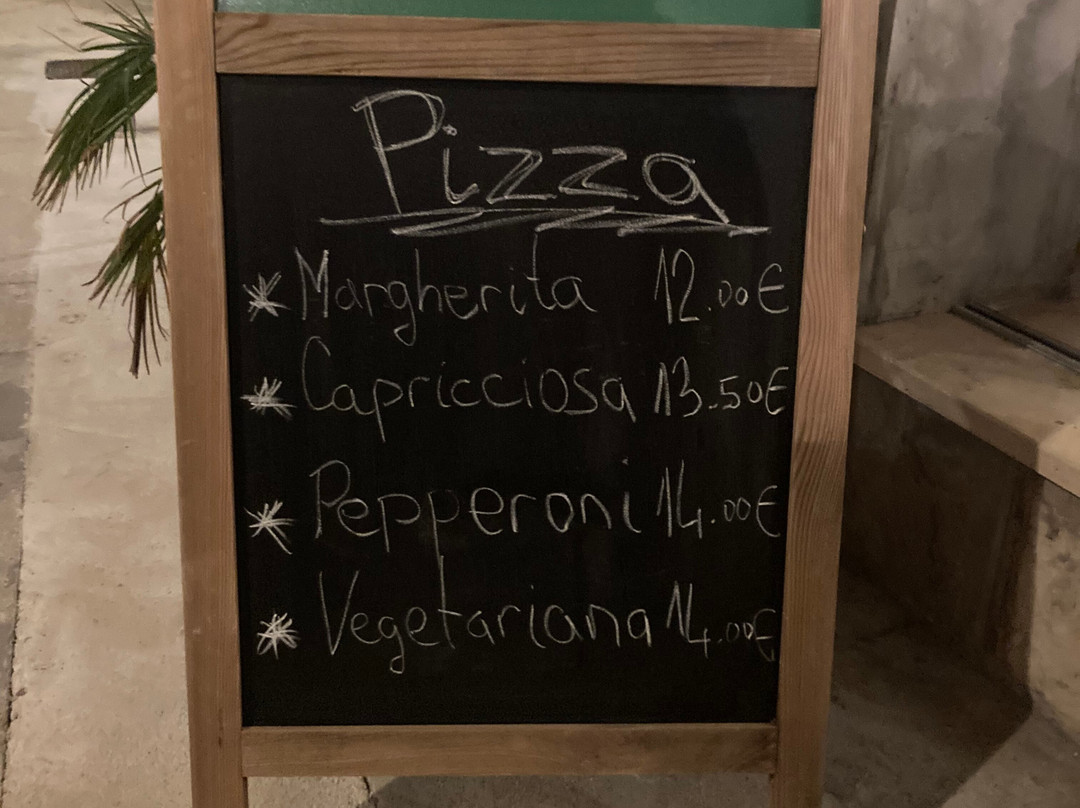 Pizza
* Margherita 12.00€
* Capricciosa 13.50€
* Pepperoni 14.00€
* Vegetariana 14.00€